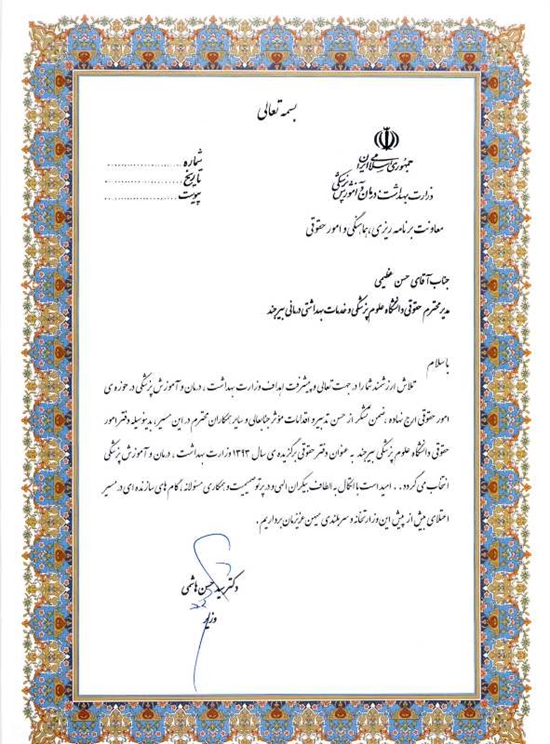 بسمه تعالی
جمهوری اسلامی ایران
وزارت بهداشت درمان و آموزش پزشکی
معاونت برنامه ریزی، هماهنگی و امور حقوقی
شماره ......................
تاریخ ......................
پیوست ......................
جناب آقای حسن عظیمی
مدیر محترم حقوقی دانشگاه علوم پزشکی و خدمات بهداشتی درمانی بیرجند
با سلام
تلاش ارزشمند شما را در جهت تعالی و پیشرفت اهداف وزارت بهداشت، درمان و آموزش پزشکی در حوزه ی
امور حقوقی ارج نهاده، ضمن تشکر از حسن تدبیر و اقدامات مؤثر جنابعالی و سایر همکاران محترم در این مسیر، بدینوسیله دفتر امور
حقوقی دانشگاه علوم پزشکی بیرجند به عنوان دفتر حقوقی برگزیده ی سال ۱۳۹۳ وزارت بهداشت، درمان و آموزش پزشکی
انتخاب می گردد. . امید است با اتکال به الطاف بیکران الهی و در پرتو صمیمیت و همکاری مسئولانه، گام های سازنده ای در مسیر
اعتلای بیش از پیش این وزارتخانه و سربلندی میهن عزیزمان برداریم.
دکتر سید حسن هاشمی
وزیر